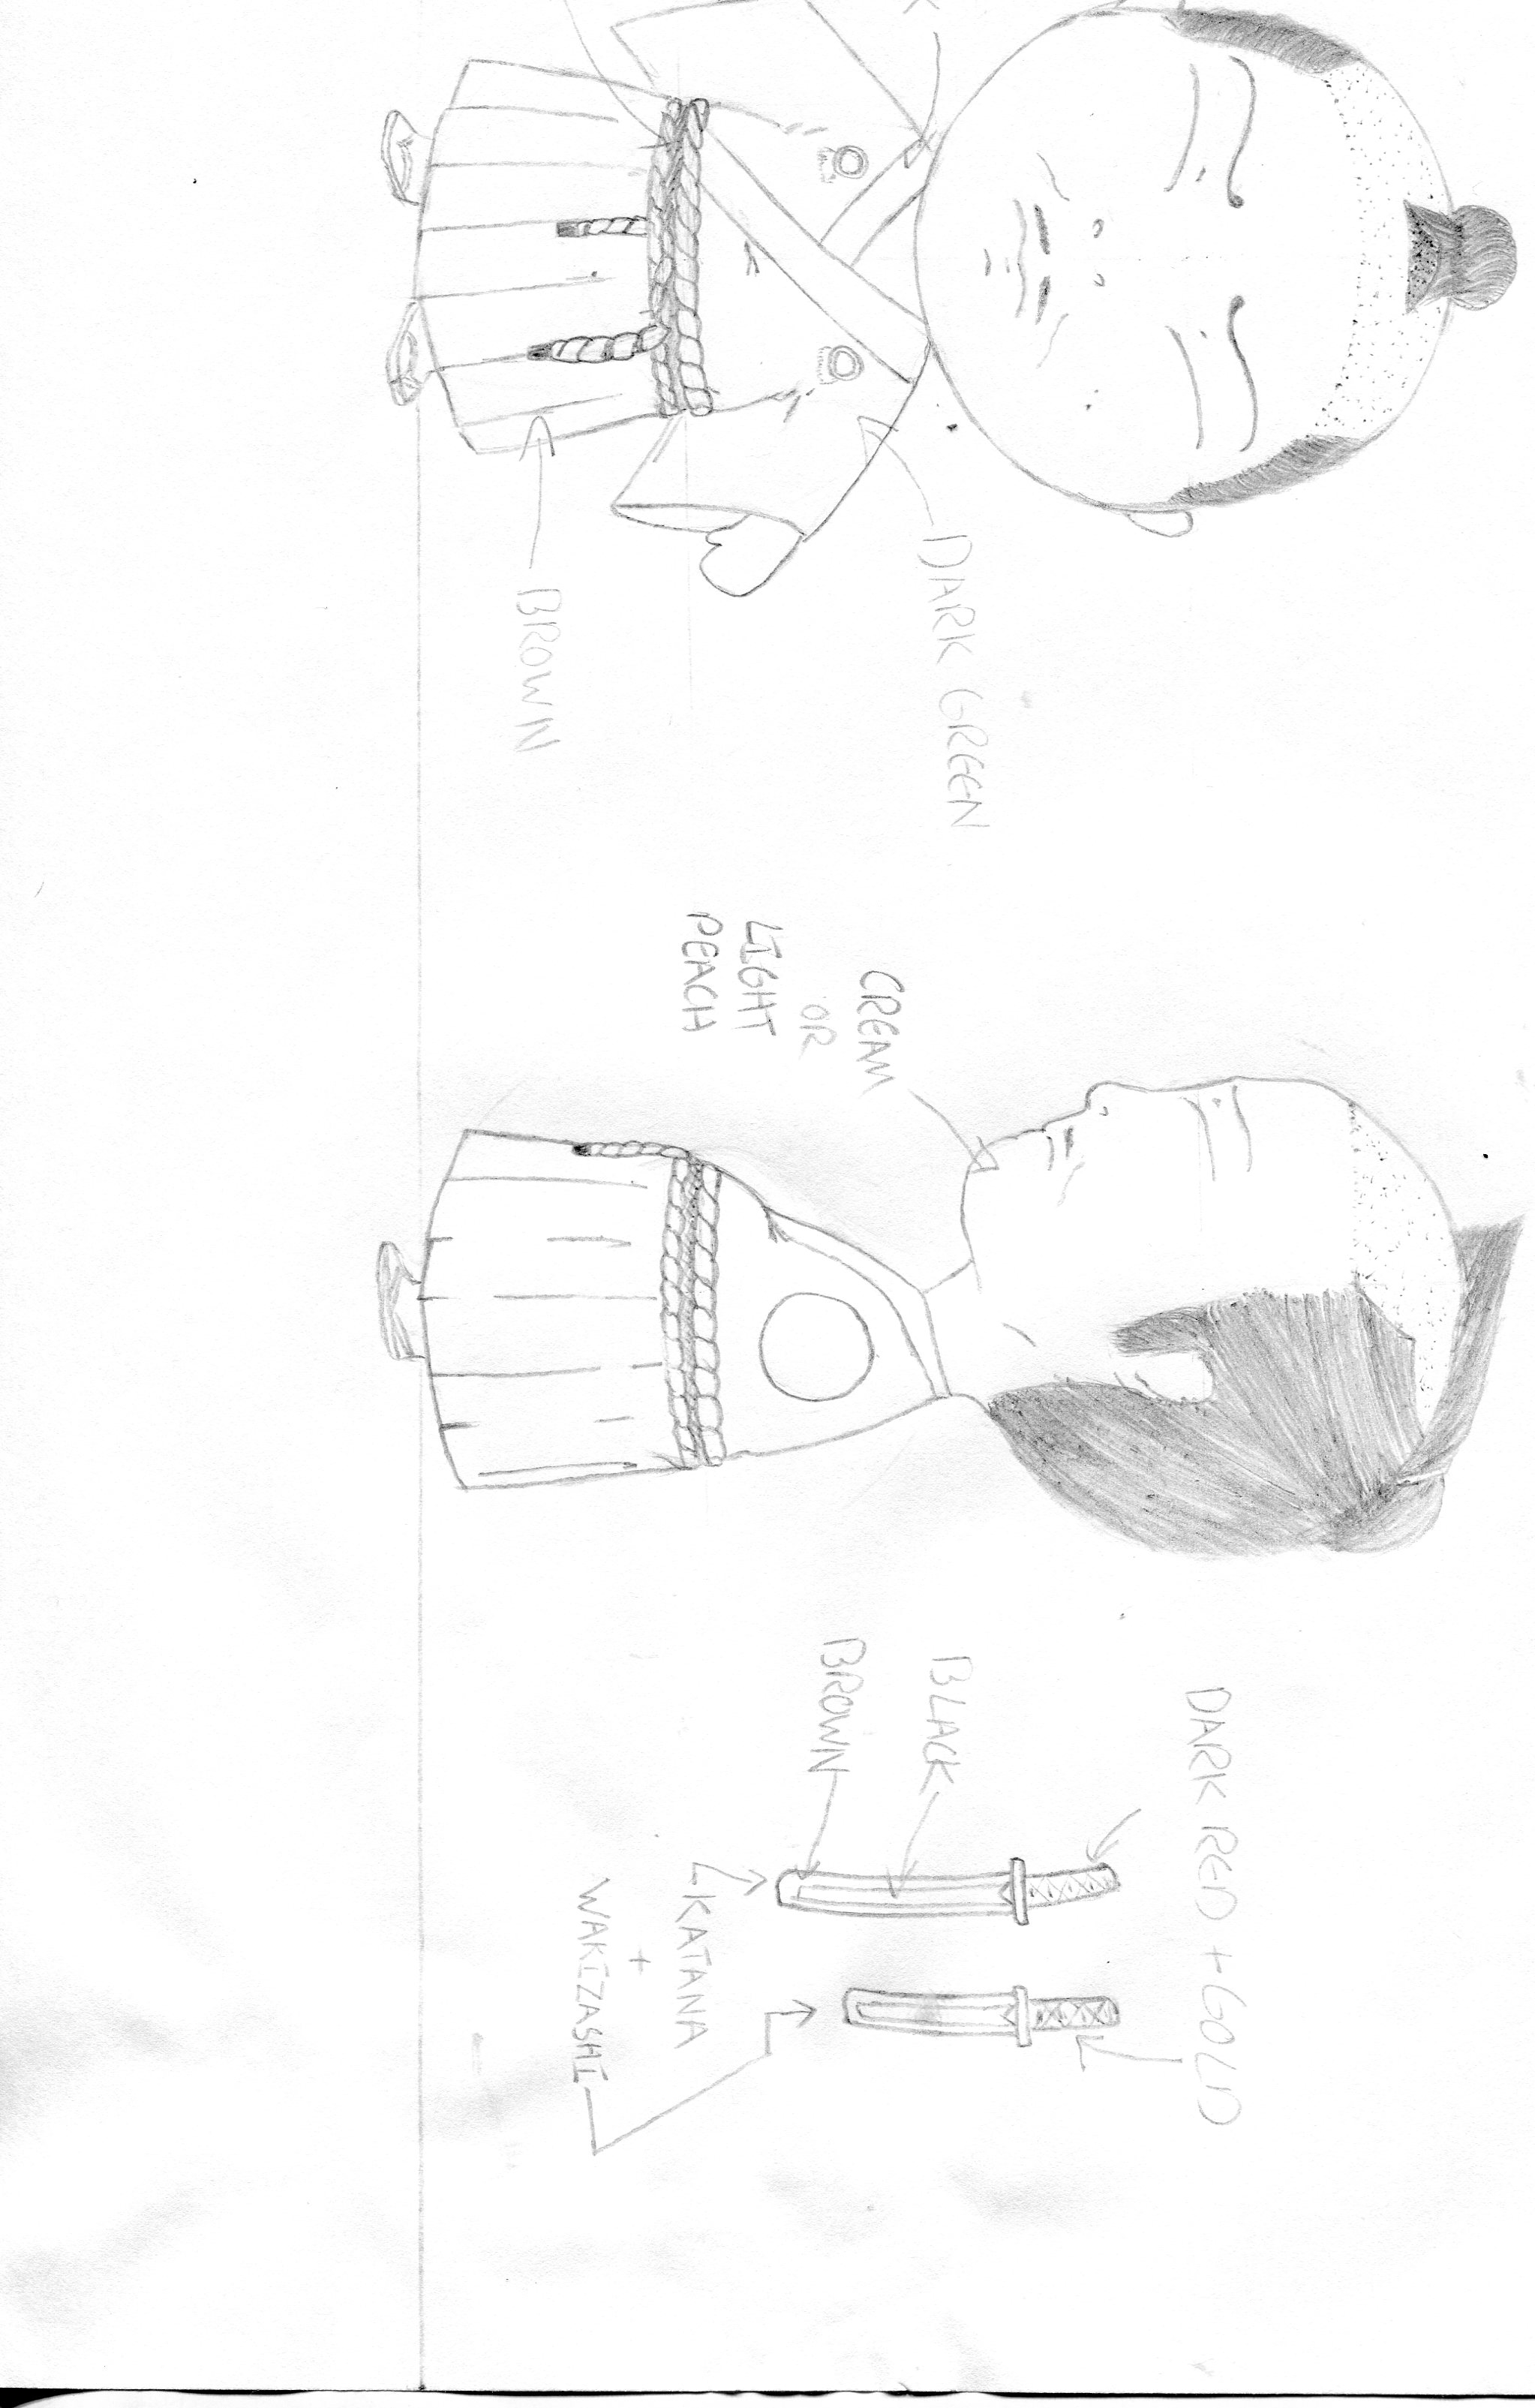 DARK GREEN
BROWN
CREAM
OR
LIGHT
PEACH
DARK RED + GOLD
BLACK
BROWN
KATANA
+
WAKIZASHI